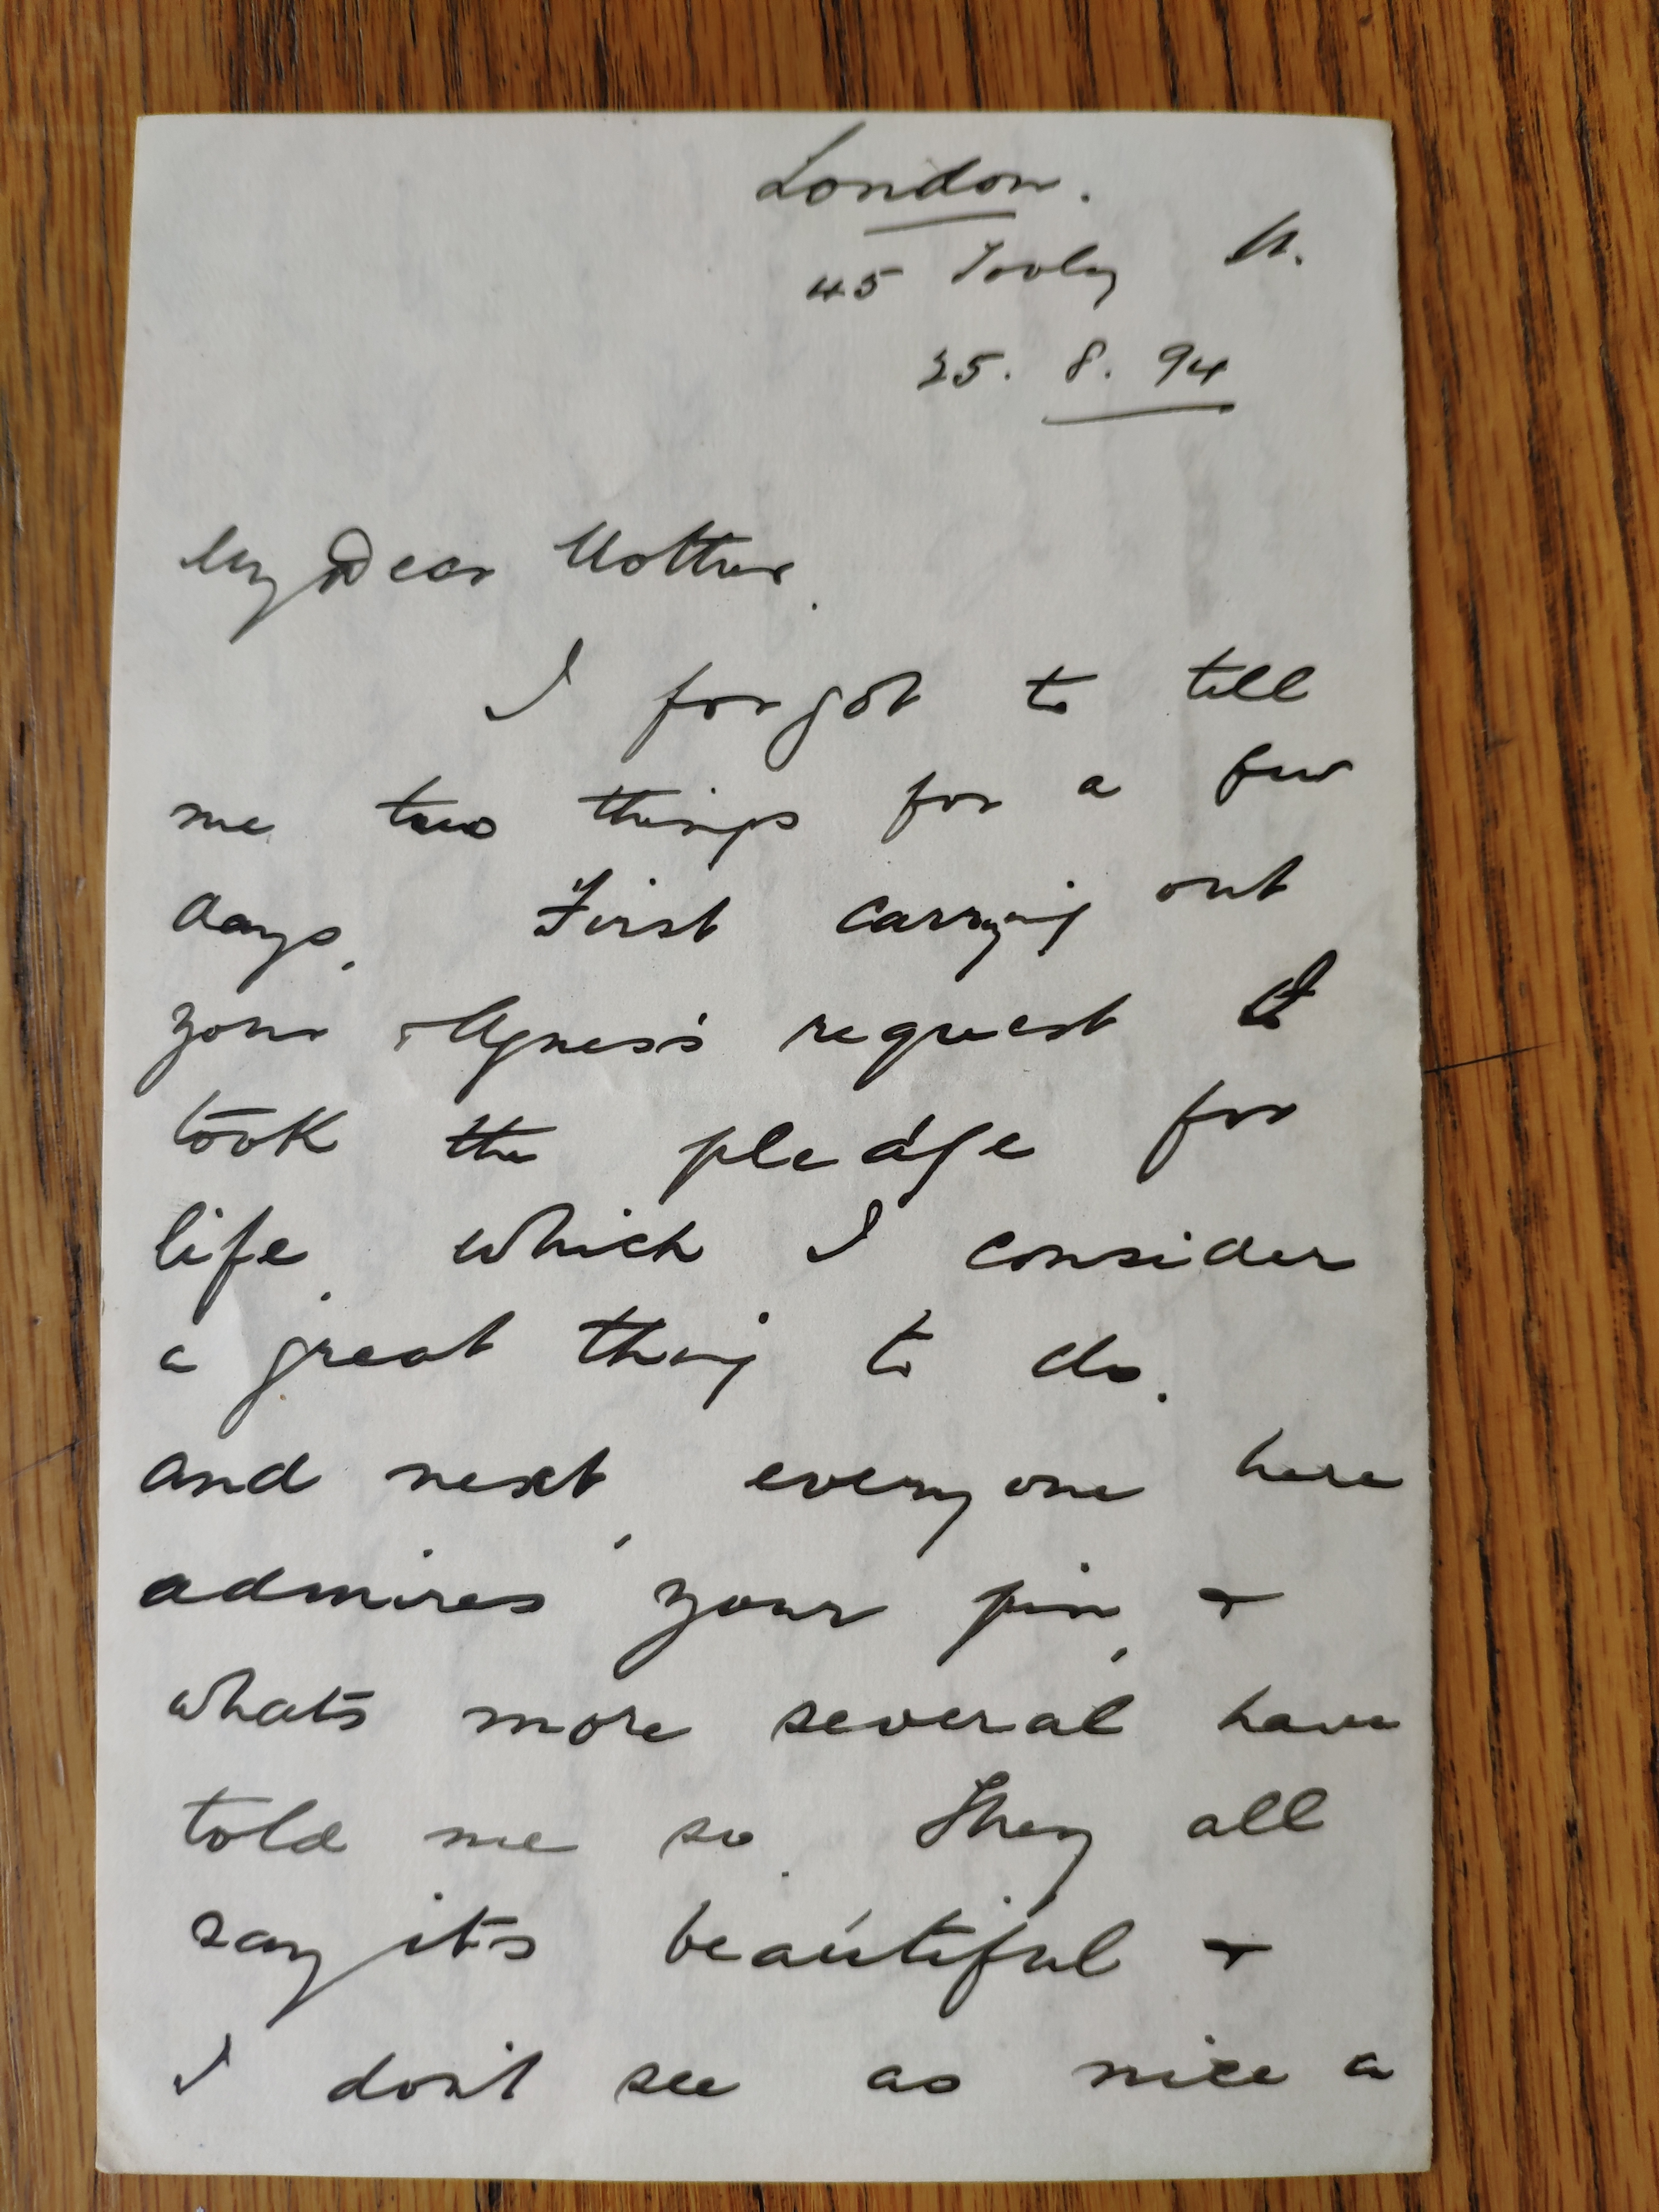 London.
45 Tooley St.
25. 8. 94
My Dear Mother.
I forgot to tell
me two things for a few
days. First carrying out
your & Agness's request I
took the pledge for
life, which I consider
a great thing to do.
and next, everyone here
admires your pin, &
whats more several have
told me so. They all
say it's beautiful &
I don't see as nice a